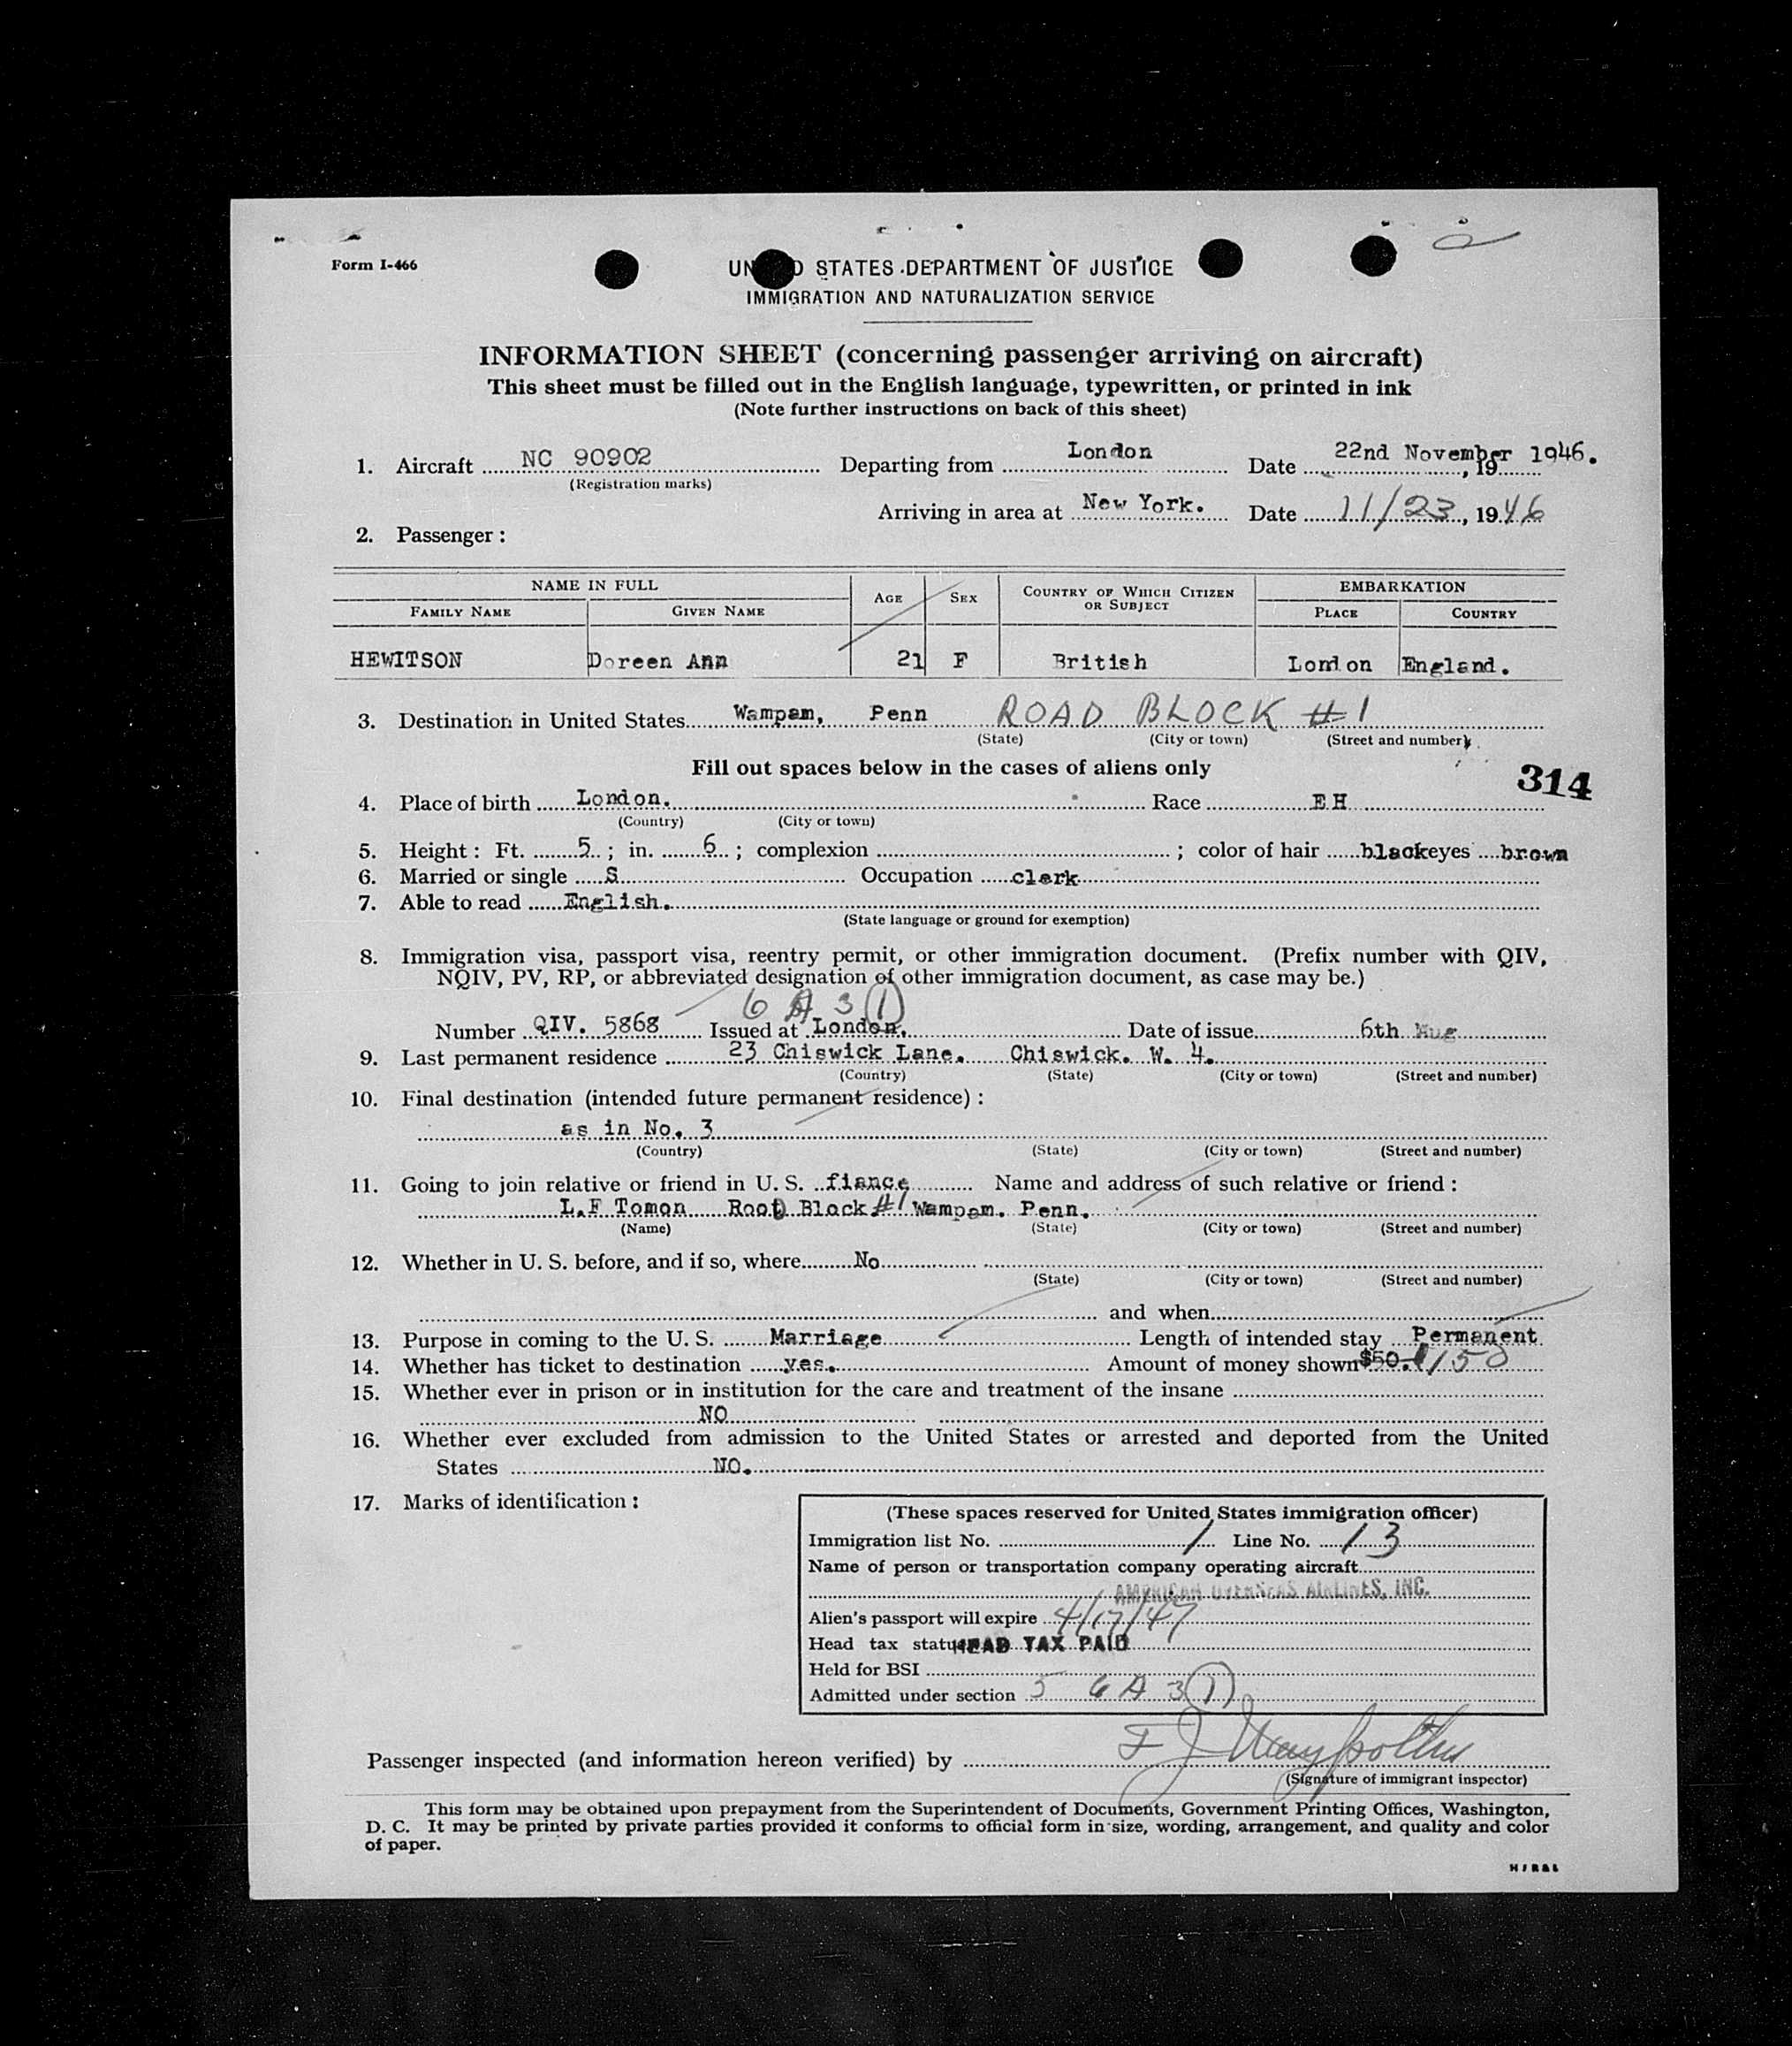 Form I-466
UNITED STATES DEPARTMENT OF JUSTICE
IMMIGRATION AND NATURALIZATION SERVICE
INFORMATION SHEET (concerning passenger arriving on aircraft)
This sheet must be filled out in the English language, typewritten, or printed in ink
(Note further instructions on back of this sheet)
1. Aircraft NC 90902 Departing from London Date 22nd November 1946. , 19
(Registration marks)
Arriving in area at New York. Date 11/23, 1946
2. Passenger:
NAME IN FULL AGE SEX COUNTRY OF WHICH CITIZEN OR SUBJECT EMBARKATION
FAMILY NAME GIVEN NAME PLACE COUNTRY
HEWITSON Doreen Ann 21 F British London England.
3. Destination in United States Wampam, Penn ROAD BLOCK #1
(State) (City or town) (Street and number)
Fill out spaces below in the cases of aliens only
314
4. Place of birth London. Race EH
(Country) (City or town)
5. Height: Ft. 5; in. 6; complexion ; color of hair black eyes brown
6. Married or single S Occupation clerk
7. Able to read English.
(State language or ground for exemption)
8. Immigration visa, passport visa, reentry permit, or other immigration document. (Prefix number with QIV,
NQIV, PV, RP, or abbreviated designation of other immigration document, as case may be.)
6 A 3 (1)
Number QIV. 5868 Issued at London. Date of issue 6th Aug
9. Last permanent residence 23 Chiswick Lane. Chiswick. W. 4.
(Country) (State) (City or town) (Street and number)
10. Final destination (intended future permanent residence):
as in No. 3
(Country) (State) (City or town) (Street and number)
11. Going to join relative or friend in U. S. fiance Name and address of such relative or friend:
L.F Tomon Rood Block #1 Wampam. Penn.
(Name) (State) (City or town) (Street and number)
12. Whether in U. S. before, and if so, where No
(State) (City or town) (Street and number)
and when
13. Purpose in coming to the U. S. Marriage Length of intended stay Permanent
14. Whether has ticket to destination yes. Amount of money shown $50. 150
15. Whether ever in prison or in institution for the care and treatment of the insane
NO
16. Whether ever excluded from admission to the United States or arrested and deported from the United
States NO.
17. Marks of identification:
(These spaces reserved for United States immigration officer)
Immigration list No. 1 Line No. 13
Name of person or transportation company operating aircraft
AMERICAN OVERSEAS AIRLINES, INC.
Alien's passport will expire 4/17/47
Head tax status HEAD TAX PAID
Held for BSI
Admitted under section 5 6 A 3 (1)
Passenger inspected (and information hereon verified) by
(Signature of immigrant inspector)
This form may be obtained upon prepayment from the Superintendent of Documents, Government Printing Offices, Washington,
D. C. It may be printed by private parties provided it conforms to official form in size, wording, arrangement, and quality and color
of paper.